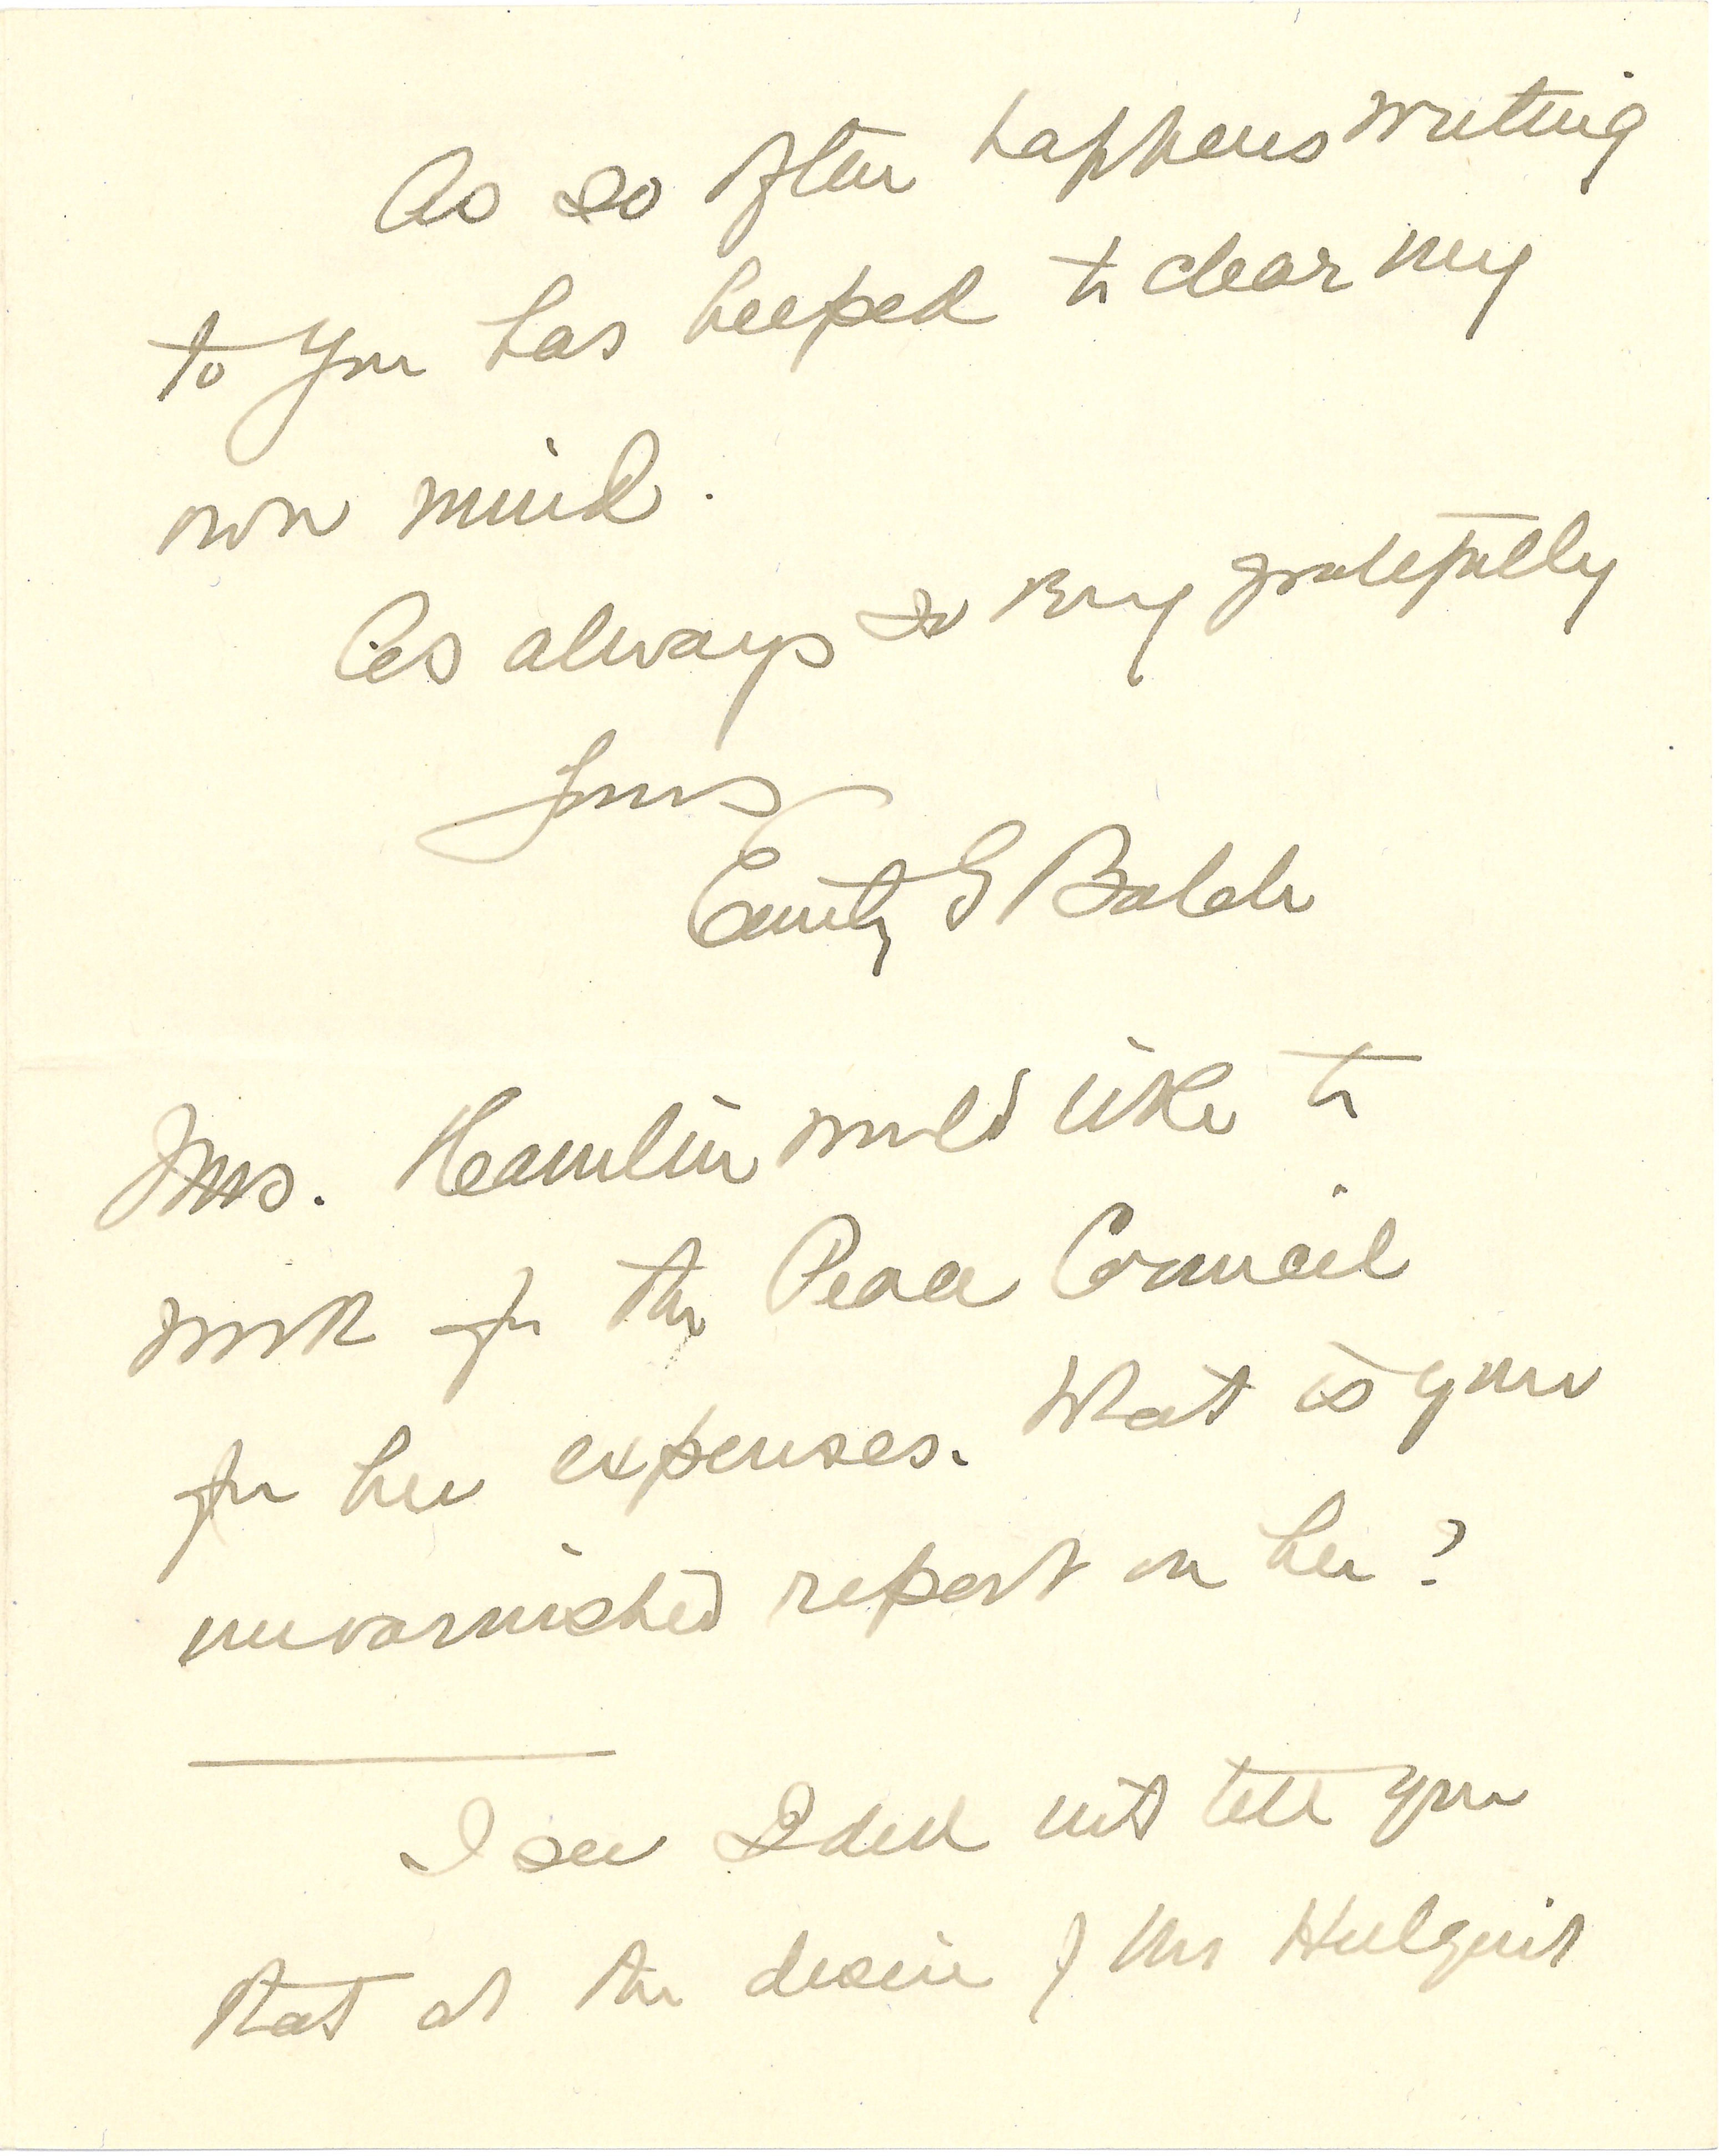 As so often happens writing
to you has helped to clear my
own mind.
As always so very gratefully
Yours
Emily G Balch
Mrs. Hamlin would like to
work for the Peace Council
for her expenses. What is your
unvarnished report on her?
I see I did not tell you
that at the desire of Mr Hulquist